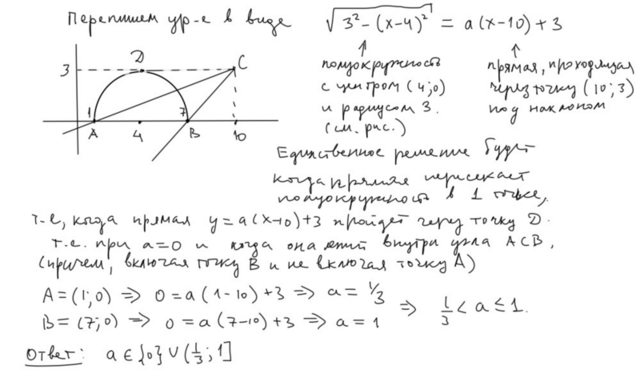 Перепишем ур-е в виде √(3² − (x−4)²) = a(x−10) + 3
полуокружность
с центром (4;0)
и радиусом 3.
(см. рис.)
прямая, проходящая
через точку (10;3)
под наклоном
3 D C
1 7
A 4 B 10
Единственное решение будет
когда прямая пересекает
полуокружность в 1 точке,
т.е, когда прямая y=a(x−10)+3 пройдёт через точку D.
т.е. при a=0 и когда она лежит внутри угла ACB,
(причем, включая точку B и не включая точку A)
A=(1;0) ⇒ 0=a(1−10)+3 ⇒ a=1/3
B=(7;0) ⇒ 0=a(7−10)+3 ⇒ a=1 ⇒ 1/3 < a ≤ 1.
Ответ: a ∈ {0} ∪ (1/3; 1]